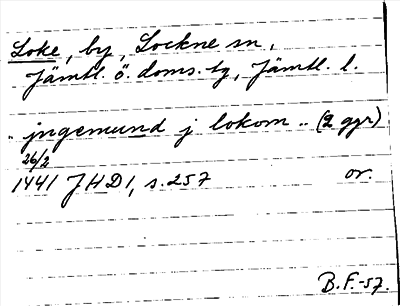 Loke, by, Lockne sn,
Jämtl. ö. doms. tg, Jämtl. l.
.. jngemund j lokom .. (2 ggr)
26/2
1441 JHD1, s. 257 or.
B.F.-57.